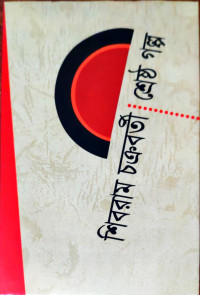 শিবরাম চক্রবর্তী শ্রেষ্ঠ গল্প